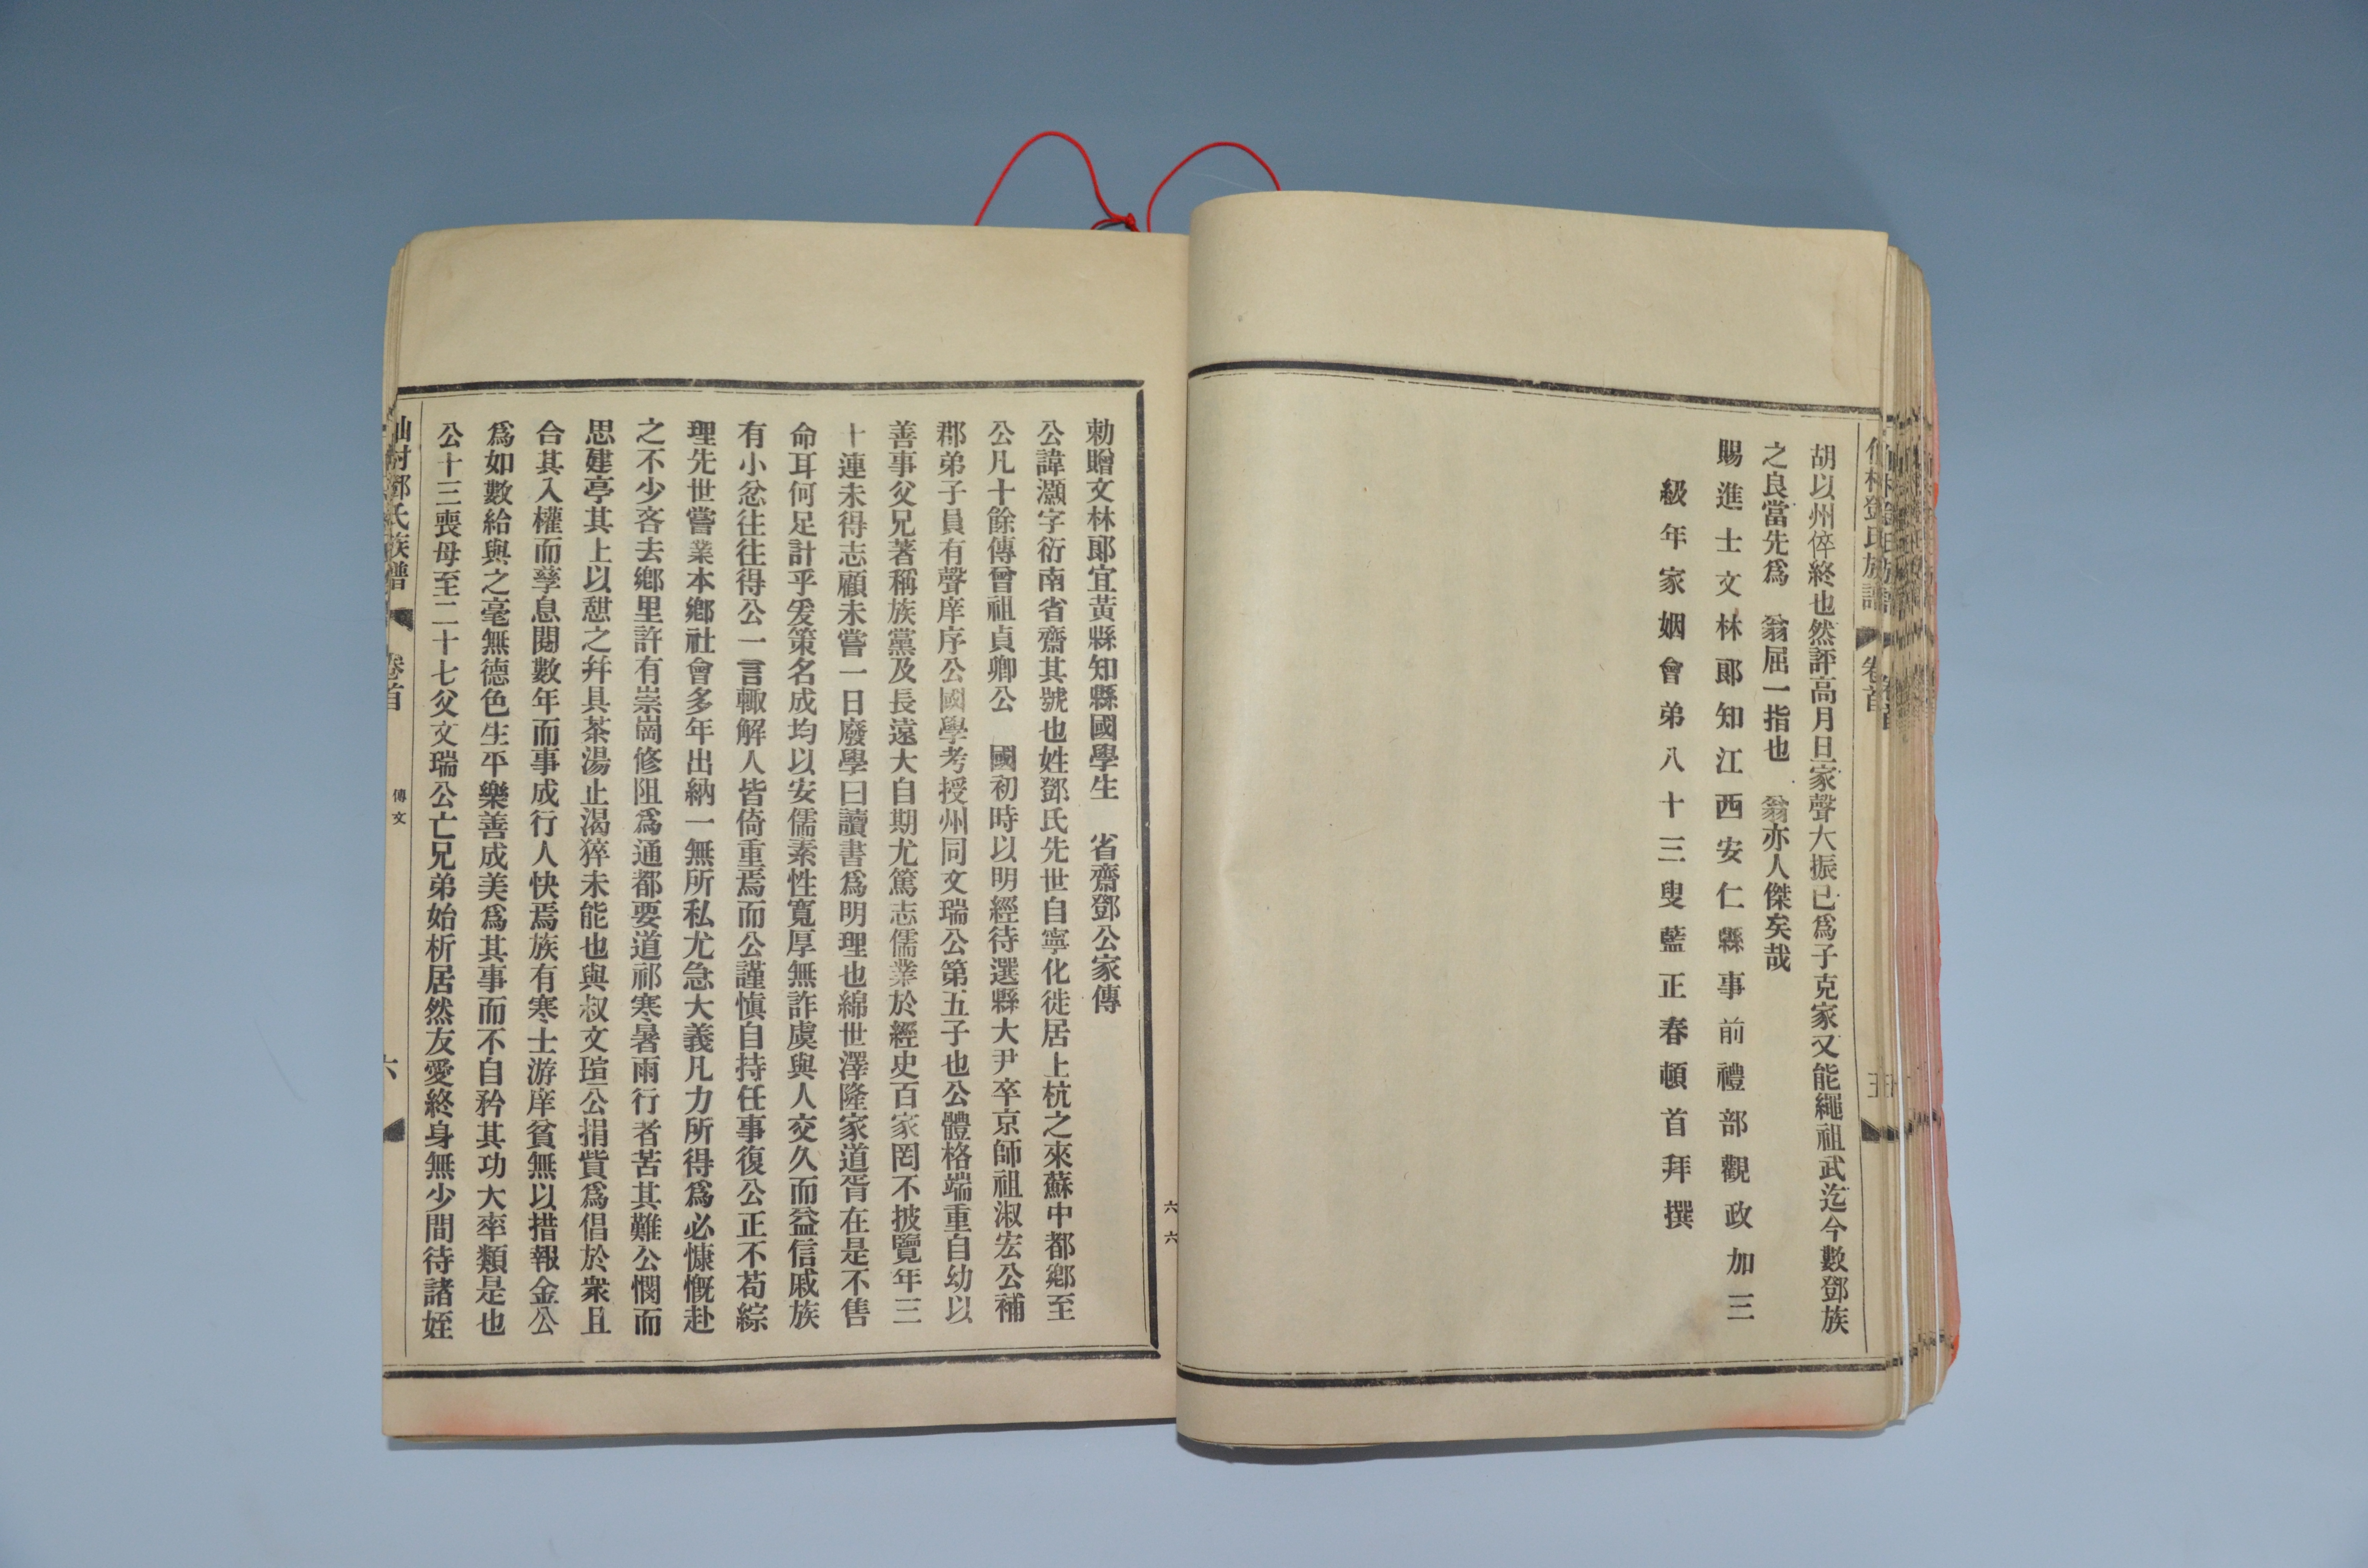 胡以州倅終也然評高月旦家聲大振已爲子克家又能繩祖武迄今數鄧族
之良當先爲　翁屈一指也　翁亦人傑矣哉
賜進士文林郎知江西安仁縣事前禮部觀政加三
級年家姻會弟八十三叟藍正春頓首拜撰
六六
勅贈文林郎宜黃縣知縣國學生　省齋鄧公家傳
公諱灝字衍南省齋其號也姓鄧氏先世自寧化徙居上杭之來蘇中都鄉至
公凡十餘傳曾祖貞卿公　國初時以明經待選縣大尹卒京師祖淑宏公補
郡弟子員有聲庠序公國學考授州同文瑞公第五子也公體格端重自幼以
善事父兄著稱族黨及長遠大自期尤篤志儒業於經史百家罔不披覽年三
十連未得志顧未嘗一日廢學曰讀書爲明理也綿世澤隆家道胥在是不售
命耳何足計乎爰策名成均以安儒素性寬厚無詐虞與人交久而益信戚族
有小忿往往得公一言輙解人皆倚重焉而公謹愼自持任事復公正不苟綜
理先世嘗業本鄉社會多年出納一無所私尤急大義凡力所得爲必慷慨赴
之不少吝去鄉里許有崇崗修阻爲通都要道祁寒暑雨行者苦其難公憫而
思建亭其上以憇之幷具茶湯止渴猝未能也與叔文瑄公捐貲爲倡於衆且
合其入權而孳息閱數年而事成行人快焉族有寒士游庠貧無以措報金公
爲如數給與之毫無德色生平樂善成美爲其事而不自矜其功大率類是也
公十三喪母至二十七父文瑞公亡兄弟始析居然友愛終身無少間待諸姪
鄧氏族譜　卷首　傳文　六